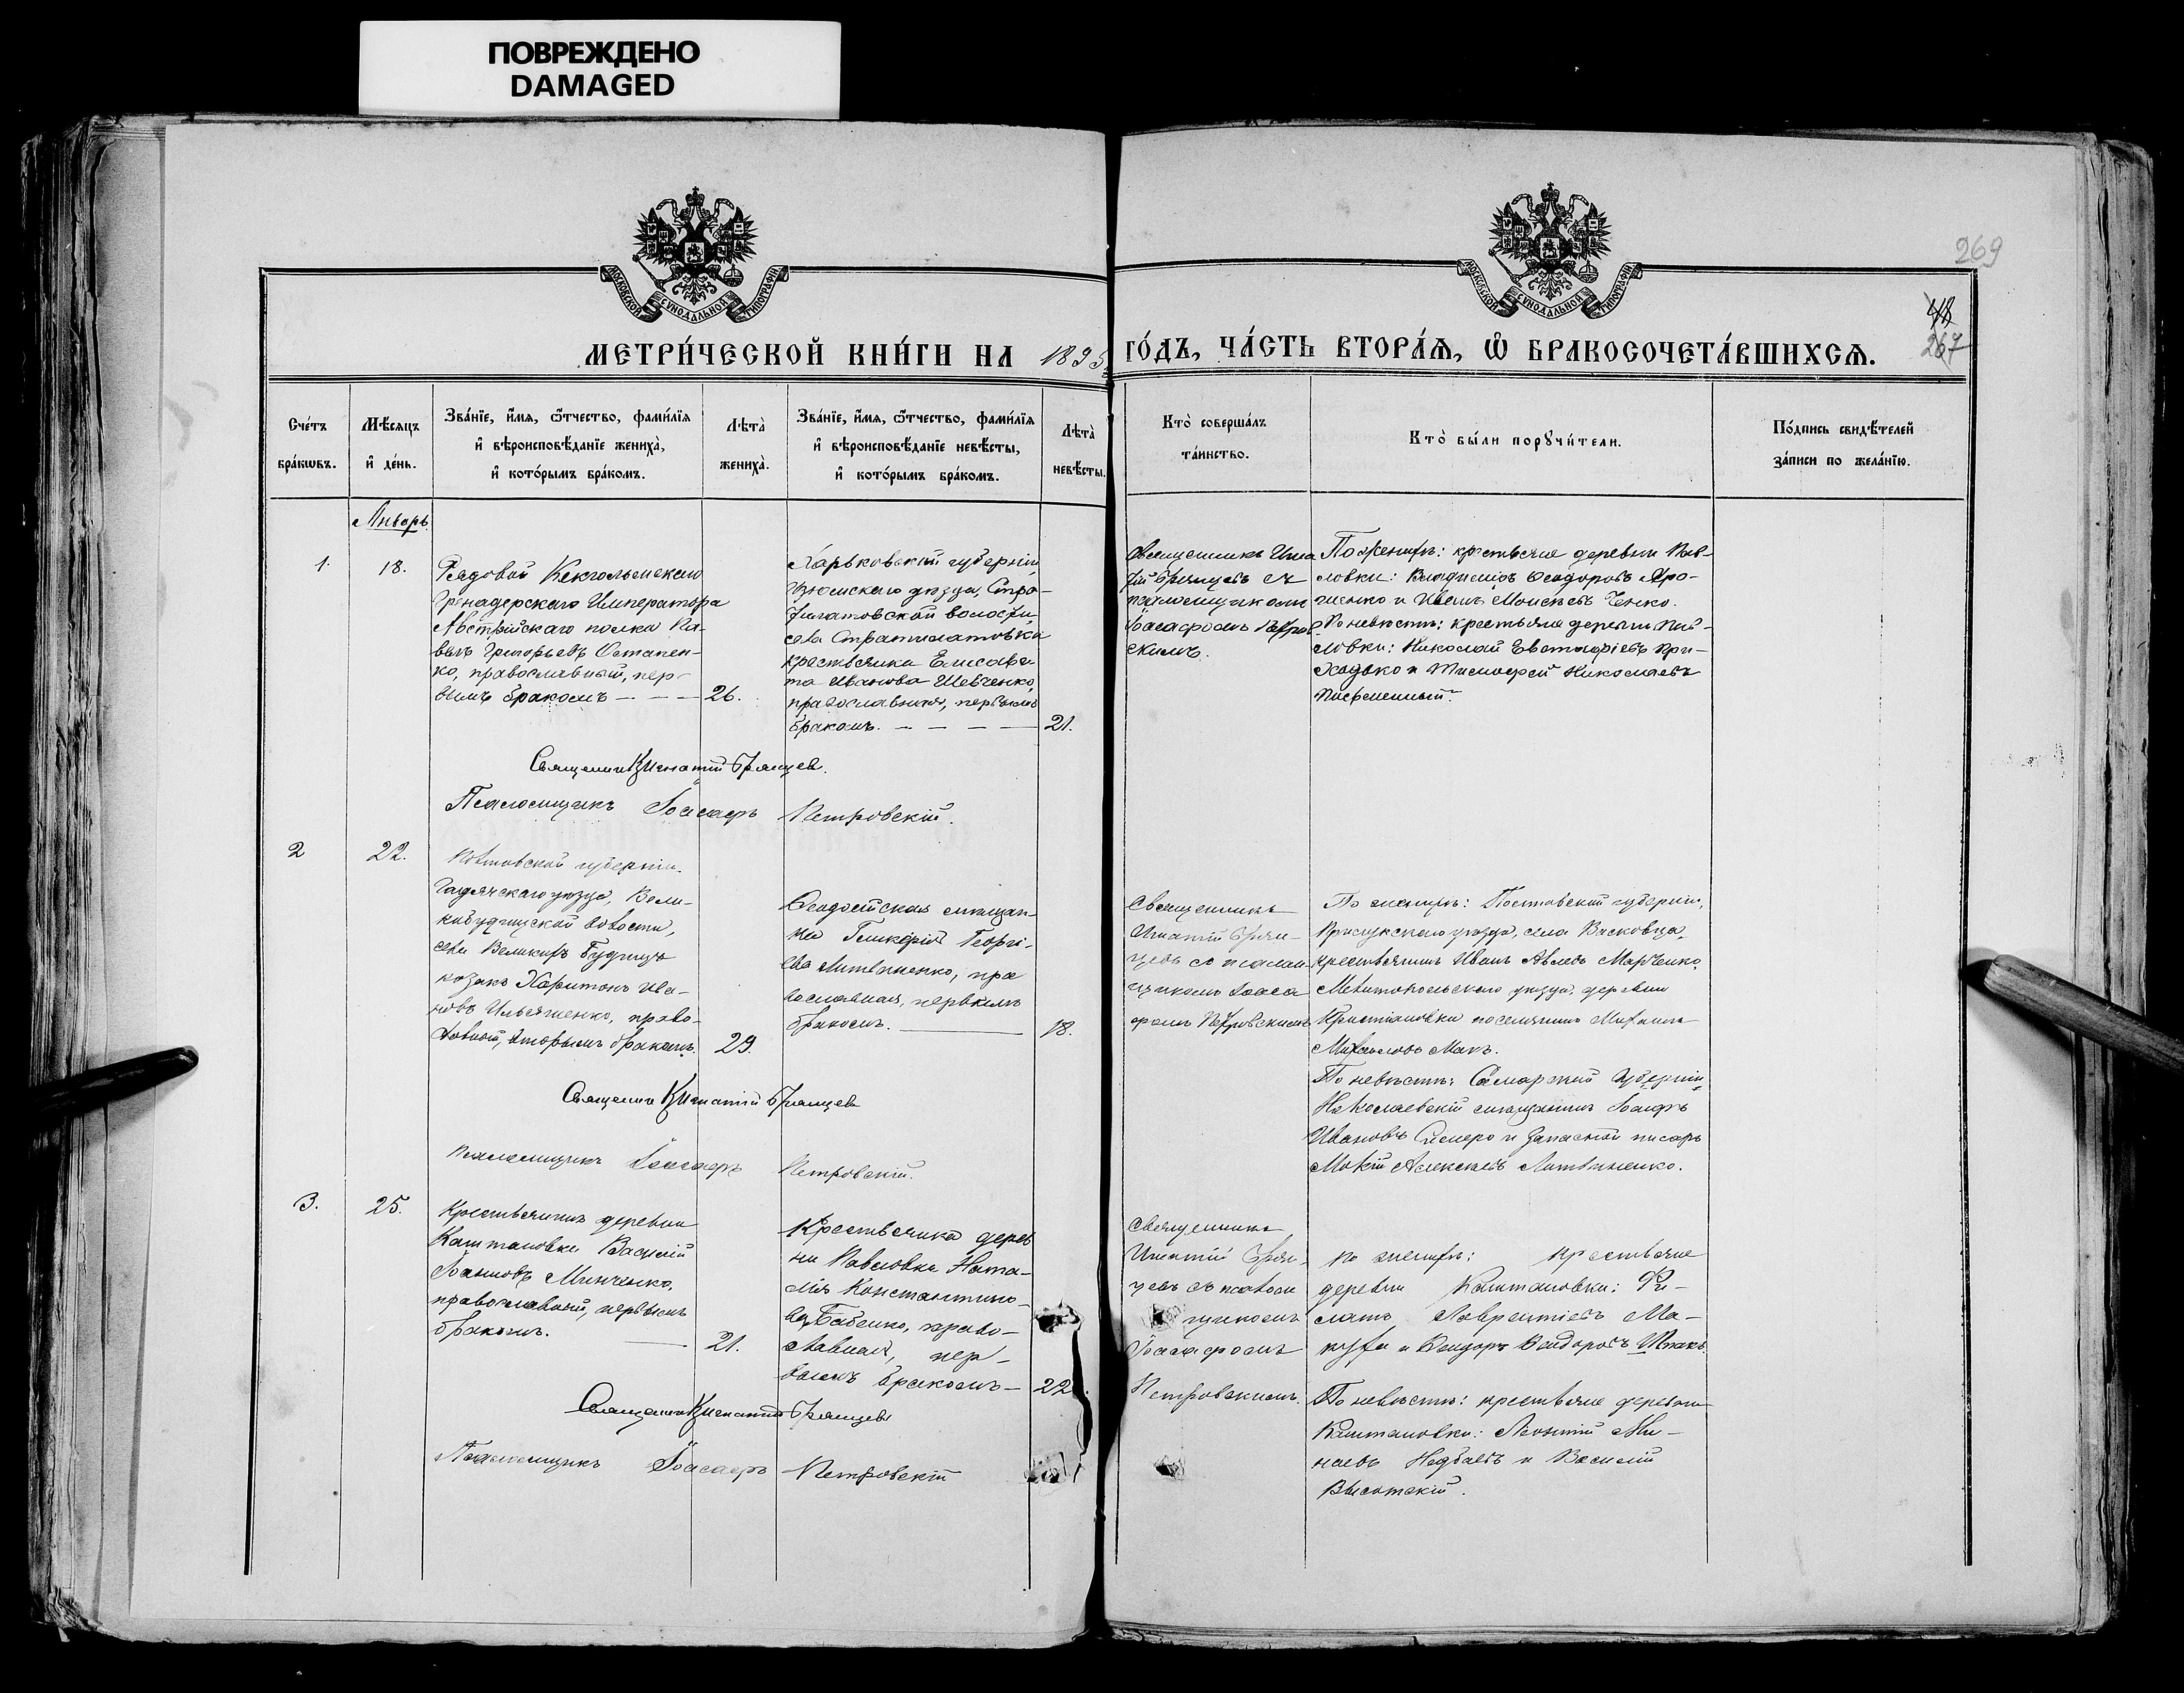 ПОВРЕЖДЕНО
DAMAGED
МОСКОВСКОЙ СУНОДАЛЬНОЙ ТИПОГРАФІИ
МОСКОВСКОЙ СУНОДАЛЬНОЙ ТИПОГРАФІИ
269
267
МЕТРИ́ЧЕСКОЙ КНИ́ГИ НА 1895
ГО́ДЪ, ЧА́СТЬ ВТОРА́Ѧ, Ѡ҆ БРАКОСОЧЕТА́ВШИХСѦ.
Сче́тъ
бра́кѡвъ.
Мѣ́сѧцъ
и҆ де́нь.
Зва́нїе, и҆́мѧ, ѻ҆́тчество, фами́лїѧ
и҆ вѣроисповѣ́данїе жениха̀,
и҆ кото́рымъ бра́комъ.
Лѣта̀
жениха̀.
Зва́нїе, и҆́мѧ, ѻ҆́тчество, фами́лїѧ
и҆ вѣроисповѣ́данїе невѣ́сты,
и҆ кото́рымъ бра́комъ.
Лѣта̀
невѣ́сты.
Кто̀ соверша́лъ
та́инство.
Кто̀ бы́ли порꙋчи́тели.
По́дпись свидѣ́телей
за́писи по жела́нїю.
Январь.
1.
18.
Рядовой Кексгольмскаго
Гренадерскаго Императора
Австрійскаго полка Па-
велъ Григорьевъ Остапен-
ко, православный, пер-
вымъ бракомъ — — — 26.
Харьковской губерніи,
Изюмскаго уѣзда, Стра-
тилатовской волости,
села Стратилатовки
крестьянка Елисаве-
та Иванова Шевченко,
православная, первымъ
бракомъ. — — — — 21.
Священникъ Игна
тій Грянцевъ съ
псаломщикомъ
Іоасафомъ Петров-
скимъ.
По женихѣ: крестьяне деревни Пав-
ловки: Владиміръ Ѳеодоровъ Яро-
шенко и Иванъ Моисеевъ Ченко.
По невѣстѣ: крестьяне деревни Пав-
ловки: Николай Евстафіевъ При-
ходько и Тимофей Николаевъ
Письменный.
Священникъ Игнатій Грянцевъ.
Псаломщикъ Іоасафъ Петровскій.
2
22.
Полтавской губерніи.
Гадячскаго уѣзда, Вели-
кобудищской волости,
села Великихъ Будищъ
козакъ Харитонъ Ива-
новъ Ильяшенко, право-
славный, вторымъ бракомъ. 29.
Ѳеодосійская мѣщан-
ка Гликерія Георгі-
ева Литвиненко, пра
вославная, первымъ
бракомъ. — 18.
Священникъ
Игнатій Грян-
цевъ съ псалом-
щикомъ Іоаса
фомъ Петровскимъ
По женихѣ: Полтавской губерніи,
Прилукскаго уѣзда, села Васковца,
крестьянинъ Иванъ Марченко,
Мелитопольскаго уѣзда, деревни
поселянинъ Михаилъ
Михаиловъ Макъ.
По невѣстѣ: Самарской губерніи
Николаевскій мѣщанинъ
Ивановъ и запасной писарь
Мокій Алексѣевъ Литвиненко.
Священникъ Игнатій Грянцевъ
Псаломщикъ Іоасафъ Петровскій.
3.
25.
Крестьянинъ деревни
Каштановки Василій
Іоанновъ Минченко,
православный, первымъ
бракомъ. — 21.
Крестьянка дерев
ни Павловки Ната-
лія Константино-
ва Бабенко, право-
славная, пер-
вымъ бракомъ — 22.
Священникъ
Игнатій Грян-
цевъ съ псалом
щикомъ
Іоасафомъ
Петровскимъ.
По женихѣ: крестьяне
деревни Каштановки: Фи-
латъ Лаврентіевъ Ма-
куха и Ѳеодоръ Ѳеодоровъ Шпакъ.
По невѣстѣ: крестьяне деревни
Каштановки: Леонтій Ми-
наевъ и Василій
Высотскій.
Священникъ Игнатій Грянцевъ
Псаломщикъ Іоасафъ Петровскій